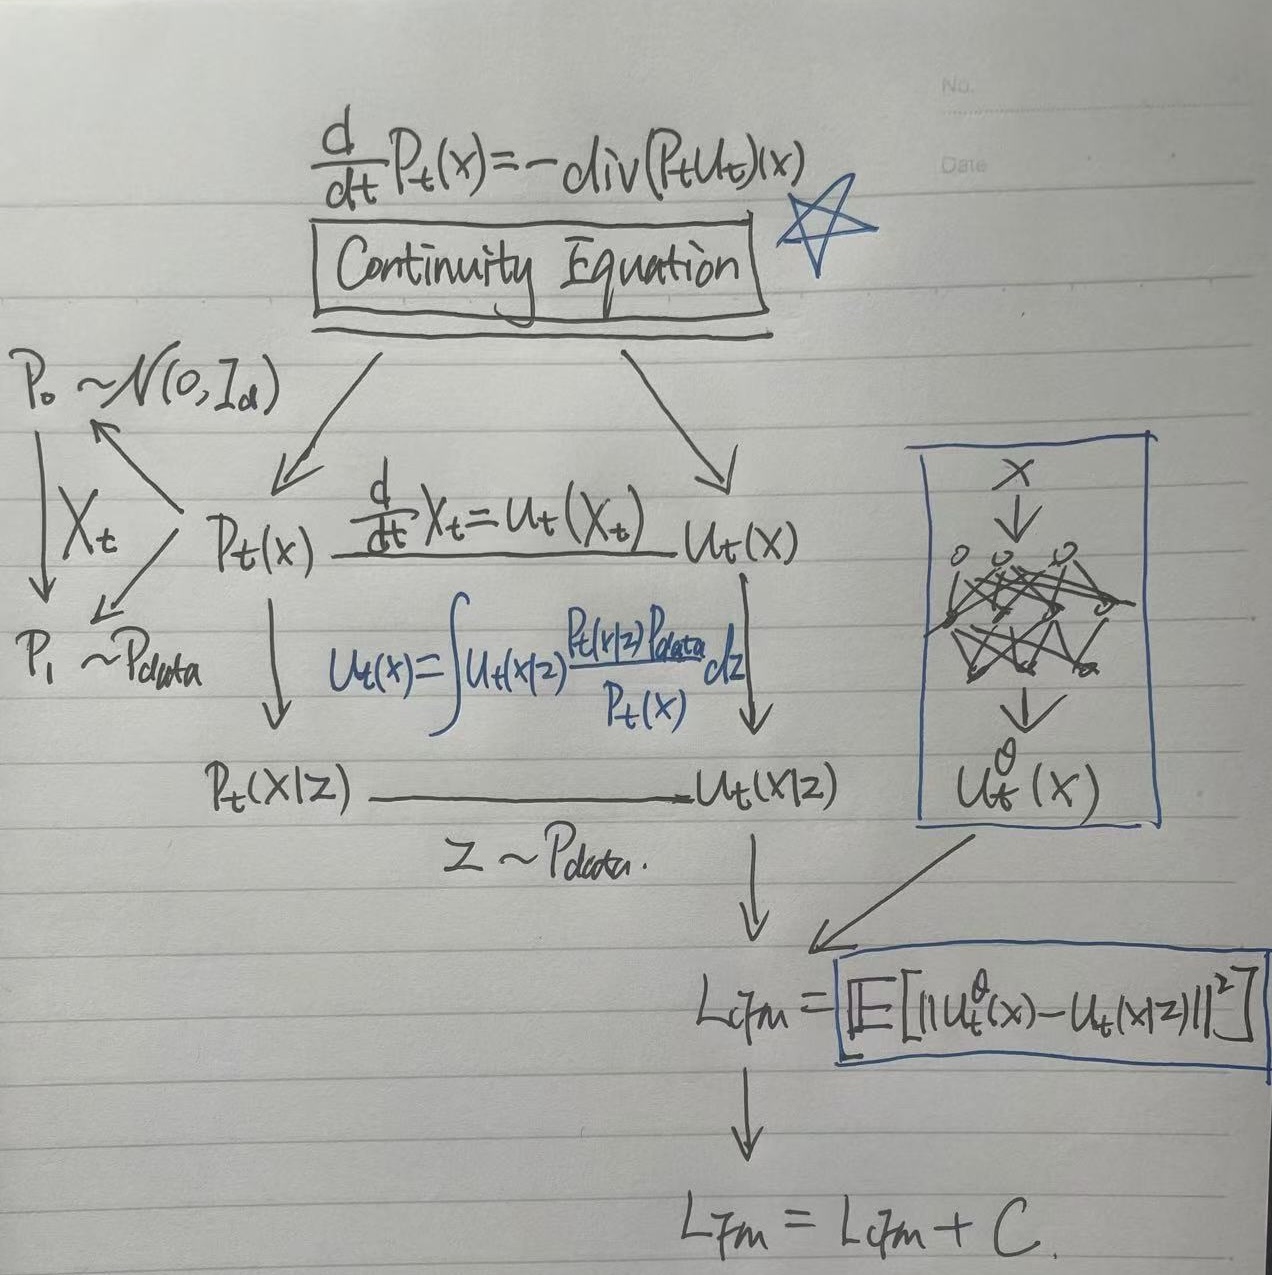 No.
Date
d/dt Pt(x)=-div(PtUt)(x)
Continuity Equation
P0 ~N(0,Id)
Xt
Pt(x)
d/dt Xt=Ut(Xt)
Ut(x)
P1 ~Pdata
Ut(x)=∫Ut(x|z) Pt(x|z)Pdata/Pt(x) dz
Pt(X|Z)
Ut(x|z)
Z ~Pdata.
X
Utθ(x)
Lcfm = E[||Utθ(x)-Ut(x|z)||²]
Lfm = Lcfm + C.